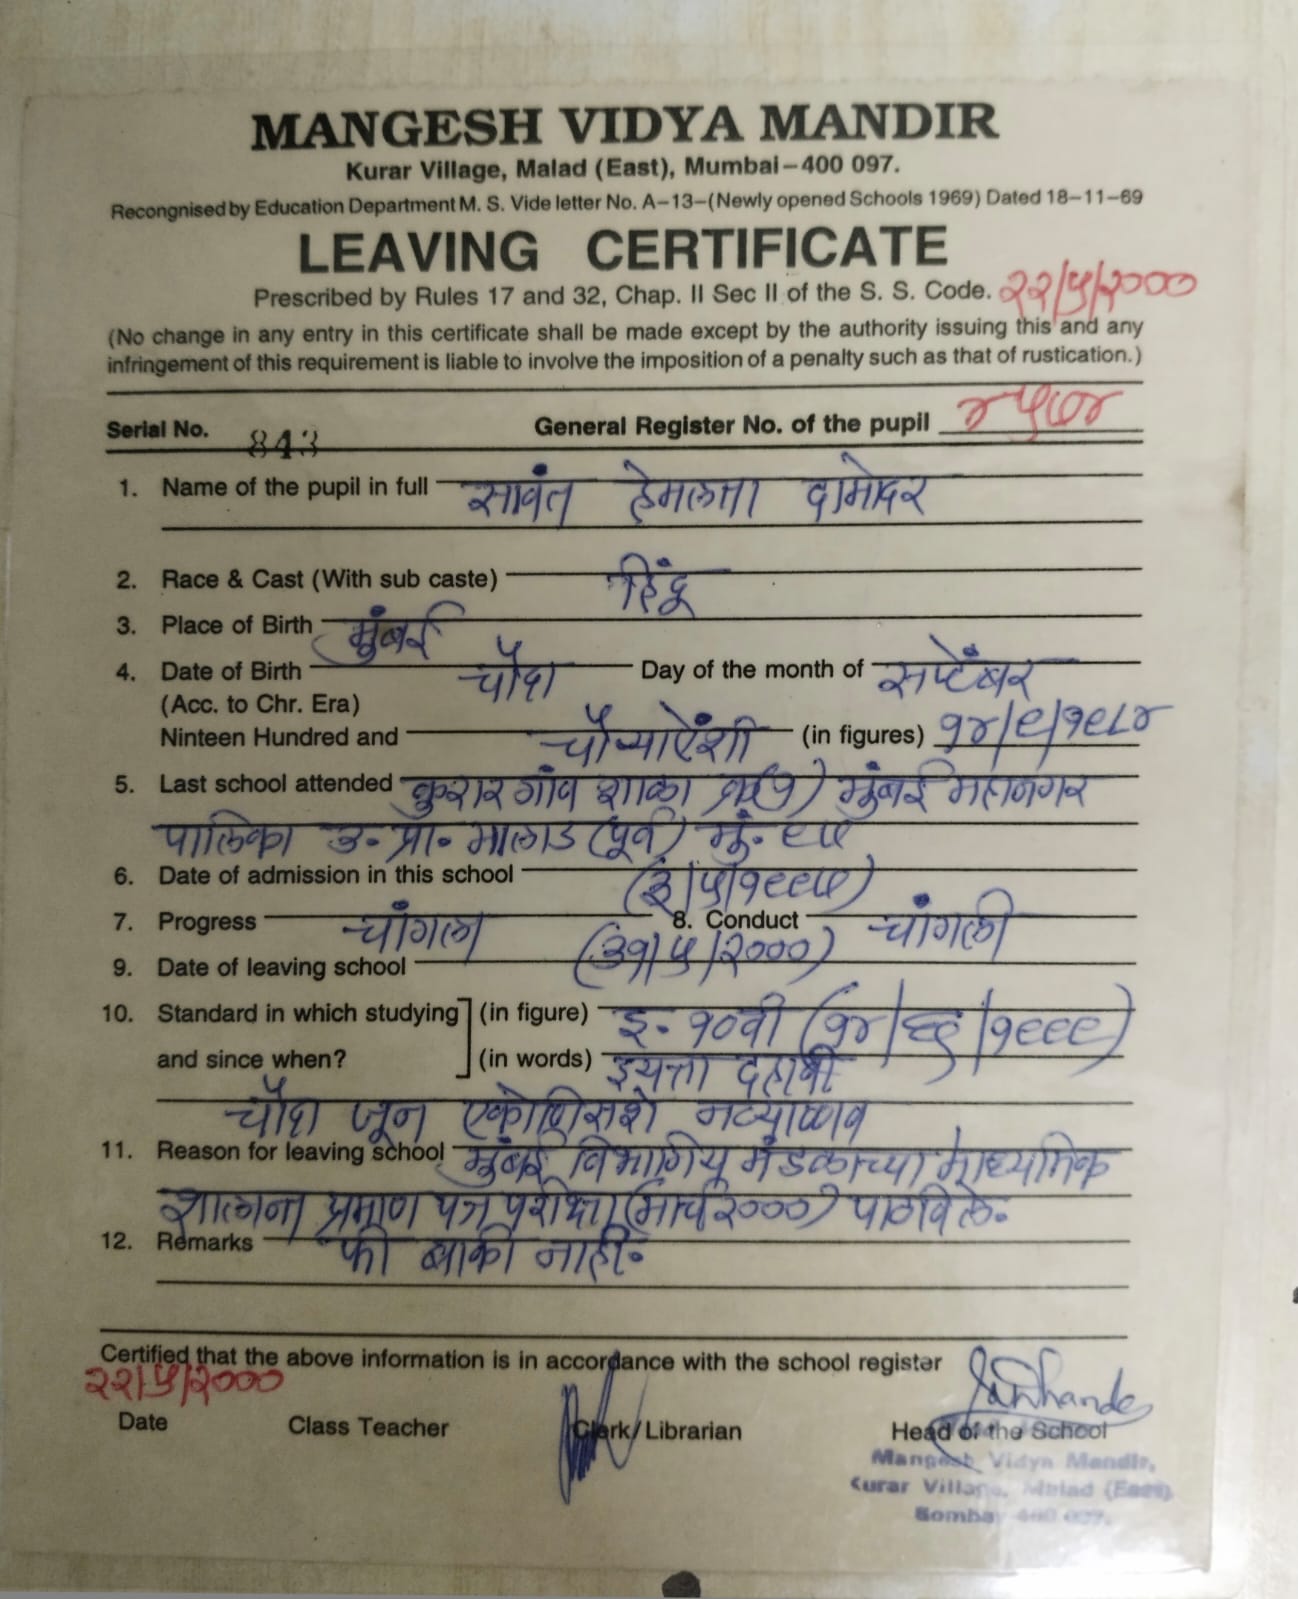 MANGESH VIDYA MANDIR
Kurar Village, Malad (East), Mumbai–400 097.
Recongnised by Education Department M. S. Vide letter No. A–13–(Newly opened Schools 1969) Dated 18–11–69
LEAVING CERTIFICATE
Prescribed by Rules 17 and 32, Chap. II Sec II of the S. S. Code. २२/५/२०००
(No change in any entry in this certificate shall be made except by the authority issuing this and any
infringement of this requirement is liable to involve the imposition of a penalty such as that of rustication.)
Serial No. 843 General Register No. of the pupil
1. Name of the pupil in full सावंत हेमलता दामोदर
2. Race & Cast (With sub caste) हिंदू
3. Place of Birth मुंबई
4. Date of Birth चौदा Day of the month of सप्टेंबर
(Acc. to Chr. Era)
Ninteen Hundred and चौऱ्याऐंशी (in figures) १४/९/१९८४
5. Last school attended कुरार गांव शाळा मुंबई महानगर
पालिका उ. प्रा. मालाड (पूर्व) मुं. ९७
6. Date of admission in this school
7. Progress चांगला 8. Conduct चांगली
9. Date of leaving school (३१/५/२०००)
10. Standard in which studying (in figure) इ. १०वी (१४/६/१९९९)
and since when? (in words) इयत्ता दहावी
चौदा जून एकोणिसशे नव्याण्णव
11. Reason for leaving school मुंबई विभागिय मंडळाच्या माध्यमिक
शालान्त प्रमाण पत्र परीक्षा (मार्च २०००) पाठविले.
12. Remarks फी बाकी नाही.
Certified that the above information is in accordance with the school register
२२/५/२०००
Date Class Teacher Clerk/Librarian Head of the School
Mangesh Vidya Mandir,
Kurar Village, Malad (East)
Bombay 400 097.